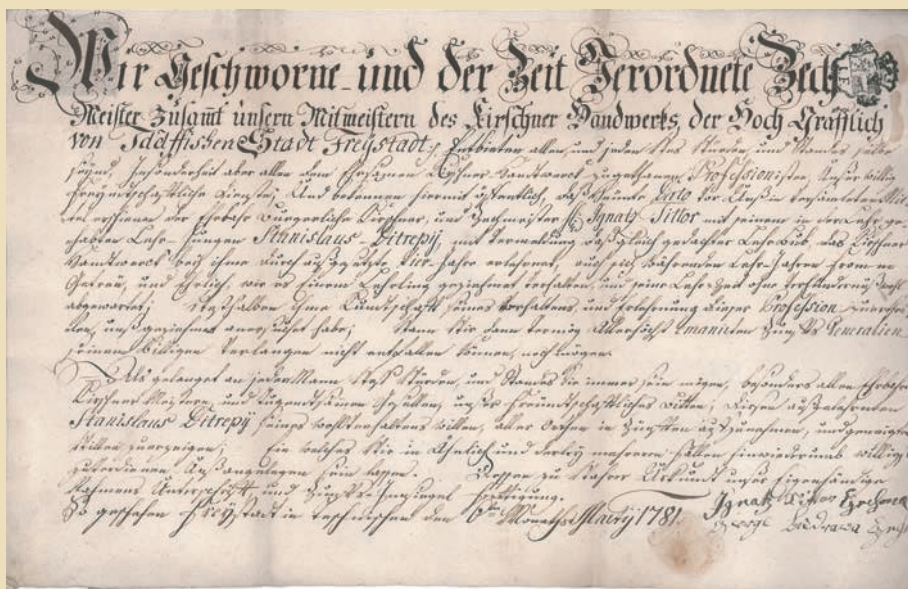 Wir Geschworne und der Zeit Verordnete Zech
Meister Zusamt unsern Mitmeistern des Kirschner Handwerks, der Hoch Gräfflich
von Taaffischen Stadt Freystadt, Entbieten allen, und jeden, wes Würden, und Standes selbe
seynd, Insonderheit aber allen dem Ehrsamen Kirschner Handwerck zugethanen Professionisten, Unser willig
freundschaftliche Dienste; Und bekennen hiermit öffentlich, daß heunte Dato vor Unß in versamleten
erschienen der Ehrbahre Burgerliche Kirschner, und Zechmeister H: Ignatz Sillor mit seinem in der Lehr ge
habten Lehr-Jungen Stanislaus Ditrepÿ, mit Vermeldung daß gleich gedachter Lehr Bub, das Kirschner
Handwerck beÿ ihme durch Vier Jahre erlehrnet, auch sich während den Lehr-Jahren from
Getreu, und Ehrlich, wie es einem Lehrling geziehmet verhalten, und seine Lehr Zeit ohne
abgewartet; Derthalben ihme Kundtschafft seines Verhaltens, und Erlehrnung dieser Profession
unß geziehmet ersuchet habe; Wann Wir dann vermög Allerhöchst emanirten Zunfts Generalien
seinem billigen Verlangen nicht entfallen können, noch mögen.
Als gelanget an jeden Mann Was Würden, und Standes Sie immer sein mögen, besonders allen Ehrbahren
Kirschner Meistern, und Tugendsamen Gesellen, unser freundschaftliches bitten, diesen außgelehrnten
Stanislaus Ditrepÿ seines wohlverhaltens willen, aller Orthen in Zunfften aufzunehmen, und geneigten
Willen zuerzeigen; Ein welches Wir in Ähnlich und derleÿ mehreren fällen hinwiederumb willigst
zuverdienen Unß angelegen seyn lassen. Dessen zu Wahrer Urkund unßre Eigenhändige
Nahmens Unterschrifft und Zunfts-Innsiegel fertigung.
So geschehen Freystadt in teschnischen den 6ten Monaths Martij 1781.
Ignatz Sillor
George